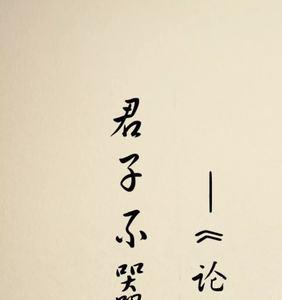 君子不器
—《论